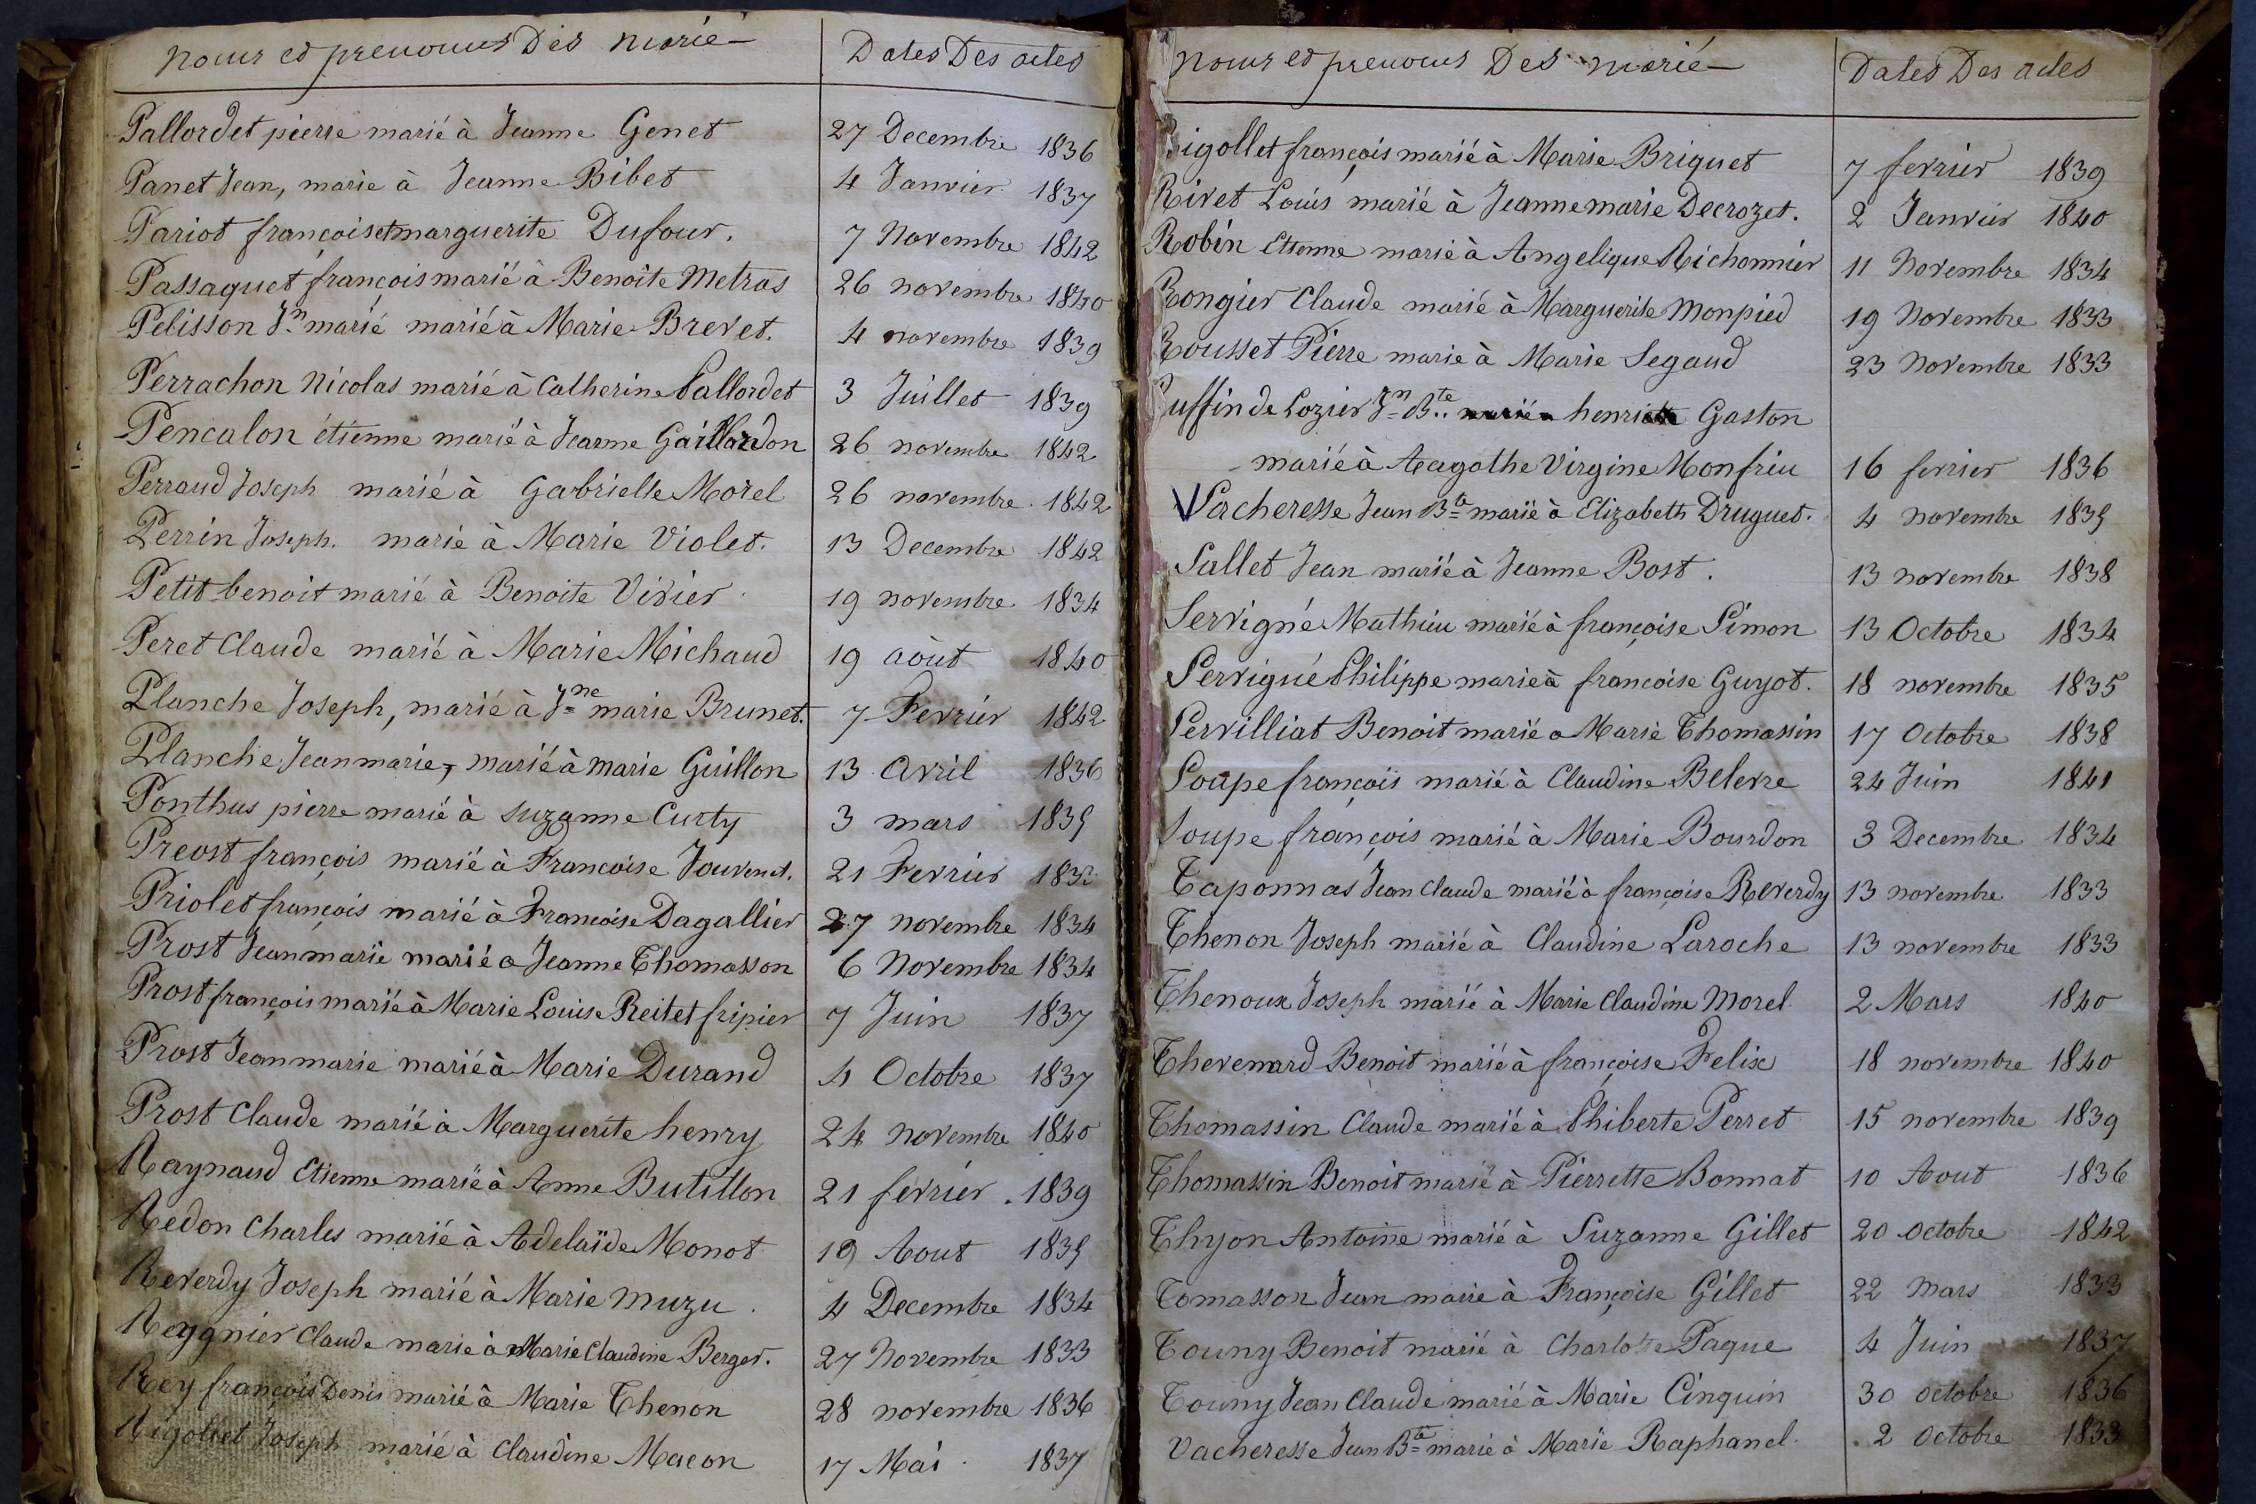 Noms et prenoms Des Marié Dates Des actes
Pallordet pierre marié à Jeanne Genet 27 Decembre 1836
Panet Jean, marie à Jeanne Bibet 4 Janvier 1837
Pariot françois et marguerite Dufour. 7 Novembre 1842
Passaquet françois marié à Benoite Metras 26 novembre 1840
Pelisson Jn marié marié à Marie Brevet. 4 novembre 1839
Perrachon Nicolas marié à Catherine Pallordet 3 Juillet 1839
Pencalon étienne marié à Jeanne Gaillardon 26 novembre 1842
Perraud Joseph marié à Gabrielle Morel 26 novembre 1842
Perrin Joseph. marié à Marie Violet. 13 Decembre 1842
Petit benoit marié à Benoite Vivier 19 novembre 1834
Peret Claude marié à Marie Michaud 19 août 1840
Planche Joseph, marié à Jne marie Brunet. 7 Fevrier 1842
Planche Jeanmarie, marié à marie Guillon 13 Avril 1836
Ponthus pierre marié à Suzanne Curty 3 mars 1835
Preost françois marié à Francoise Jouvent. 21 Fevrier
Priolet françois marié à Francoise Dagallier 27 novembre 1834
Prost Jeanmarie marié a Jeanne Thomasson 6 Novembre 1834
Prost françois marié à Marie Louise Reitet fripier 7 Juin 1837
Prost Jeanmarie marié à Marie Durand 4 Octobre 1837
Prost Claude marié à Marguerite henry 24 Novembre 1840
Raynaud Etienne marié à Anne Butillon 21 février 1839
Redon Charles marié à Adelaïde Monot 19 Aout 1835
Reverdy Joseph marié à Marie Muzu. 4 Decembre 1834
Reygnier Claude marié à Marie Claudine Berger. 27 Novembre 1833
Rey françois Denis marié à Marie Thenon 28 novembre 1836
Rigollet Joseph marié à Claudine Macon 17 Mai 1837
Noms et prenoms Des Marié Dates Des actes
Rigollet françois marié à Marie Briguet 7 fevrier 1839
Rivet Louis marié à Jeannemarie Decrozet. 2 Janvier 1840
Robin Etienne marié à Angelique Richonnier 11 Novembre 1834
Rongier Claude marié à Marguerite Monpied 19 Novembre 1833
Rousset Pierre marie à Marie Segaud 23 Novembre 1833
Ruffin de Lozier Jn Bte marié a henri Gaston
marié à Aagathe Virgine Monfriu 16 fevrier 1836
V Sacheresse Jean Bte marié à Elizabeth Druguet. 4 novembre 1835
Sallet Jean marié à Jeanne Bost. 13 novembre 1838
Servigné Mathieu marié à françoise Simon 13 Octobre 1834
Servigné Philippe marié à francoise Guyot. 18 novembre 1835
Servilliat Benoit marié a Marie Thomassin 17 Octobre 1838
Soupe françois marié à Claudine Belevre 24 Juin 1841
Soupe françois marié à Marie Bourdon 3 Decembre 1834
Taponnas Jean Claude marié à françoise Reverdy 13 novembre 1833
Thenon Joseph marié à Claudine Laroche 13 novembre 1833
Thenoux Joseph marié à Marie Claudine Morel. 2 Mars 1840
Thevenard Benoit marié à françoise Felix 18 novembre 1840
Thomassin Claude marié à Phiberte Perret 15 novembre 1839
Thomassin Benoit marié à Pierrette Bonnat 10 Aout 1836
Thyon Antoine marié à Suzanne Gillet 20 octobre 1842
Tomasson Jean marie à Françoise Gillet 22 Mars 1833
Touny Benoit marié à Charlotte Paque 4 Juin 1837
Touny Jean Claude marié à Marie Cinquin 30 octobre 1836
Vacheresse Jean Bte marié à Marie Raphanel. 2 Octobre 1833